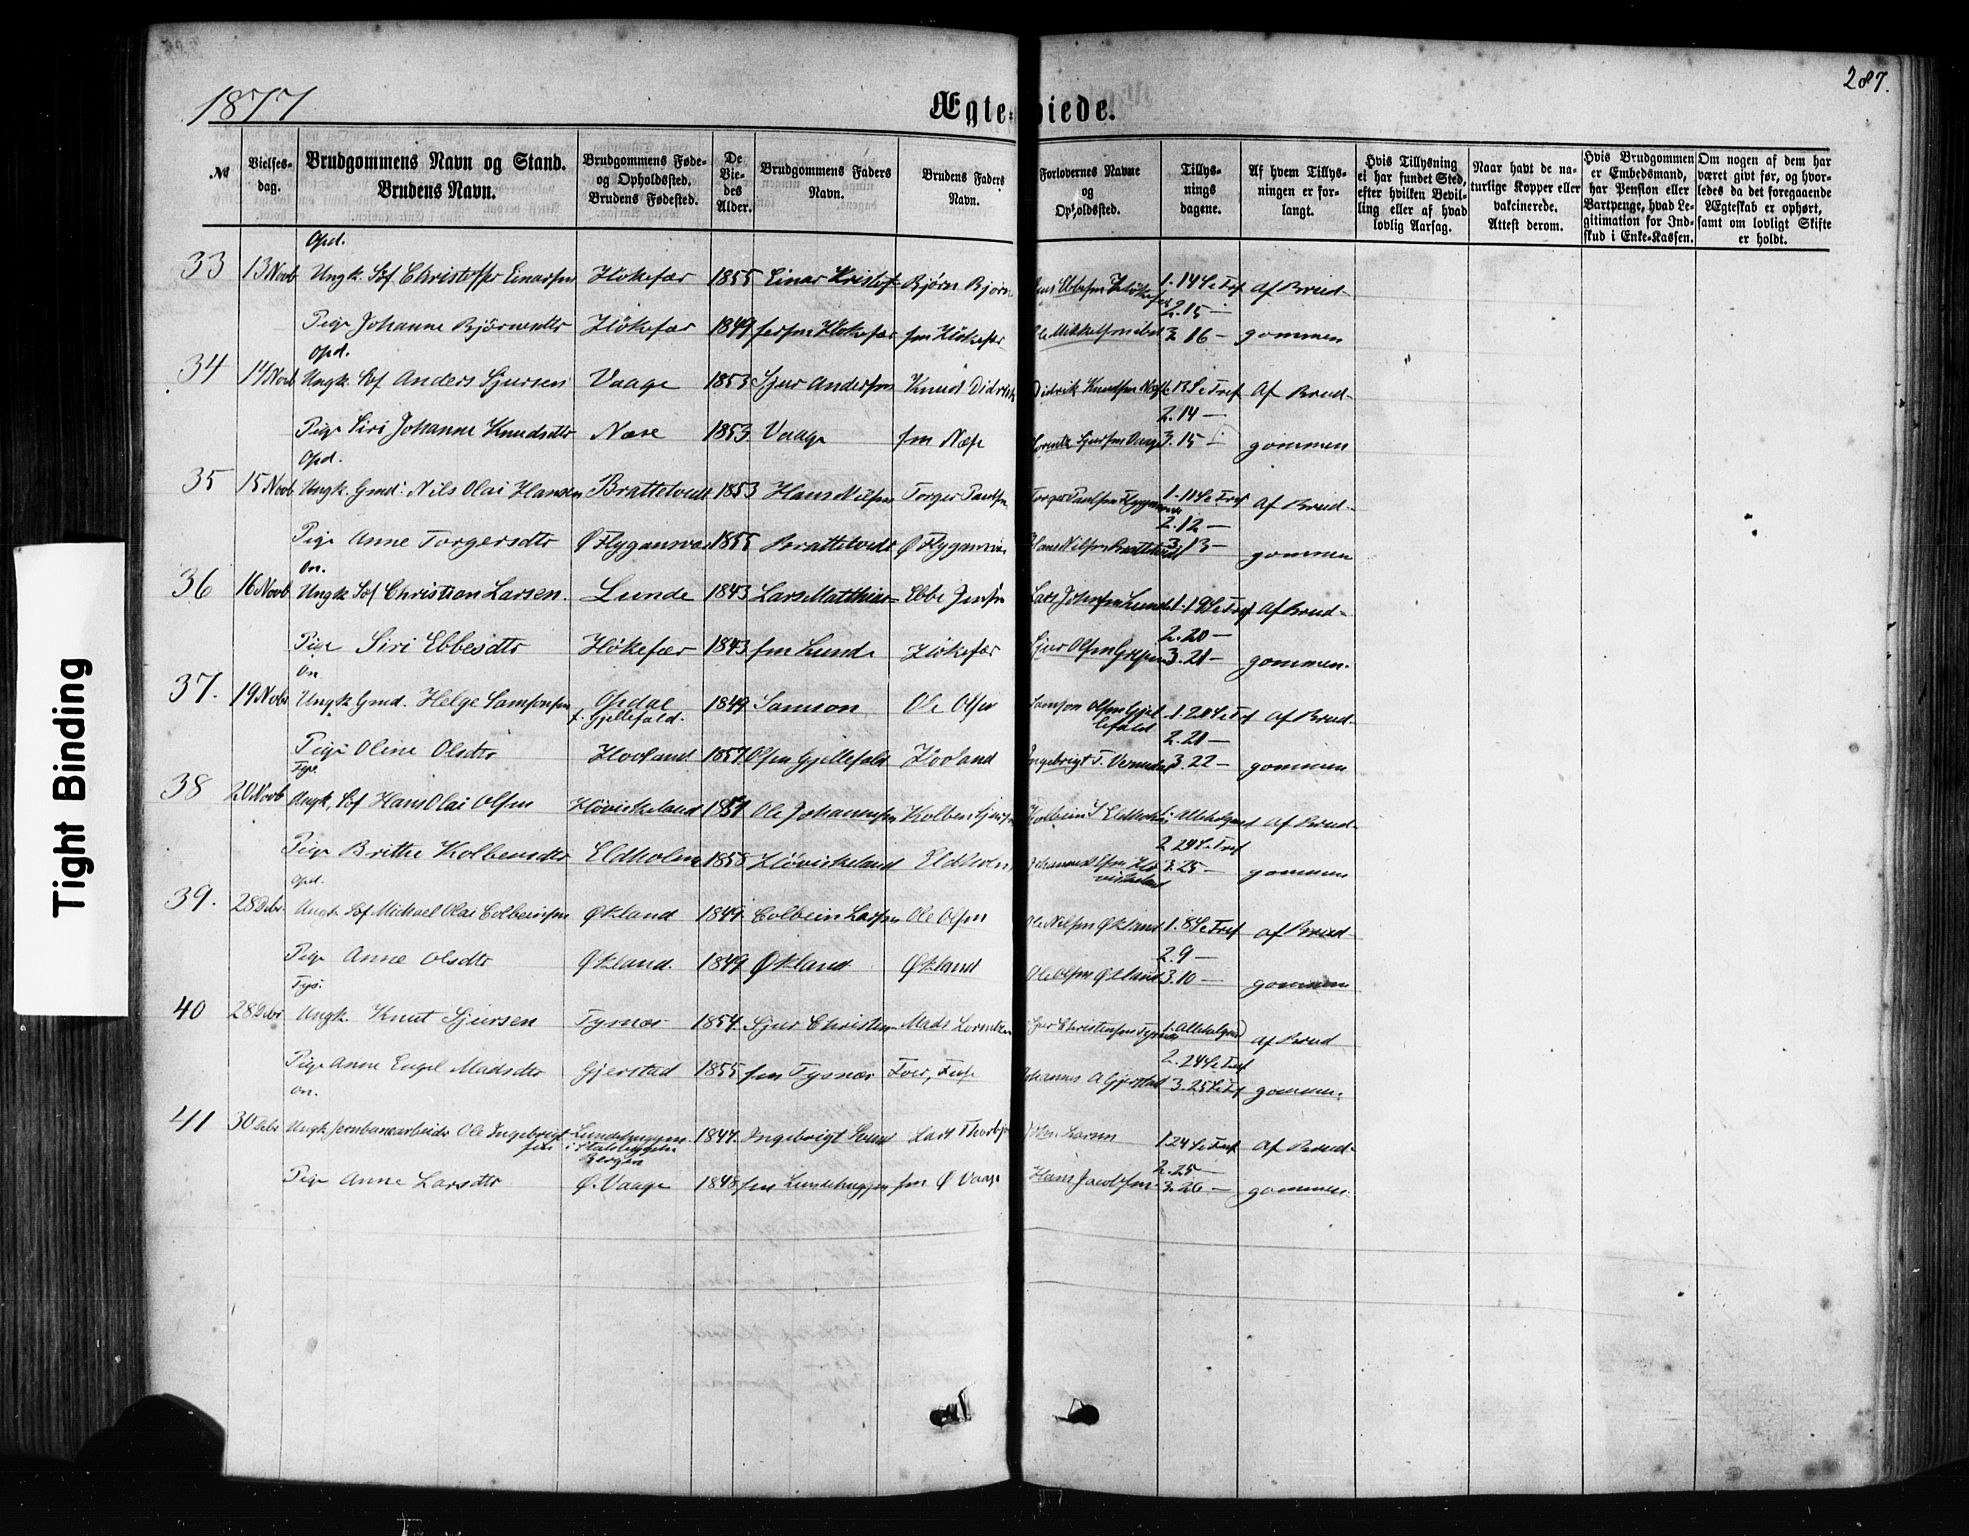 1877
Ægte-viede.
287.
Tight Binding
№
Vielses-dag.
Brudgommens Navn og Stand. Brudens Navn.
Brudgommens Føde- og Opholdssted. Brudens Fødested.
De Vie-des Alder.
Brudgommens Faders Navn.
Brudens Faders Navn.
Forlovernes Navne og Opholdssted.
Tillys-nings dagene.
Af hvem Tillys-ningen er for-langt.
Hvis Tillysning ei har fundet Sted, efter hvilken Bevil-ling eller af hvad lovlig Aarsag.
Naar havt de na-turlige Kopper eller vakcinerede. Attest derom.
Hvis Brudgommen er Embedsmand, har Pension eller Vartpenge, hvad Le-gitimation for Ind-skud i Enke-Kassen.
Om nogen af dem har været givt før, og hvor-ledes da det foregaaende Ægteskab er ophørt, samt om lovligt Skifte er holdt.
Opd.
33 13 Novb Ungk. Christoffer Einarsen Høkefær 1855 Einar Kristof- Bjørn Bjørn 1. 14 S. e. Tref af Brud-
2. 15 -
Pige Johanne Bjørnsdtr Høkefær 1849 fersen Høkefær sen Høkefær 3. 16 - gommen
Opd.
34 14 Novb Ungk. Anders Sjursen Vaage 1853 Sjur Andersen Knud Didrik Didrik Knudsen 1. 13 S. e. Tref Af Brud-
2. 14 -
Pige Siri Johanne Knudsdtr Næse 1853 Vaage sen Næse Sjursen Vaage 3. 15 - gommen
Opd.
35 15 Novb Ungk. Gmd. Nils Olai Hansen Brattetvedt 1853 Hans Nilsen Torger Paulsen Torger Paulsen 1. 11 S. e. Tref af Brud-
2. 12 -
Pige Anne Torgersdtr Ø Flygansvær 1855 Brattetvedt Ø Flygansvær Hans Nilsen Brattetvedt 3. 13 - gommen
On.
36 16 Novb Ungk. Christian Larsen Lunde 1843 Lars Matthias- Ebbe Jensen Lars Johnsen Lunde 1. 19 S. e. Tref af Brud-
2. 20 -
Pige Siri Ebbesdtr Høkefær 1843 sen Lunde Høkefær Sjur Olsen 3. 21 - gommen.
On.
37. 19 Novbr Ungk. Gmd. Helge Samsonsen Opdal 1849 Samson Ole Olsen Samson Olsen Gjel- 1. 20 S. e. Tref af Brud-
f. Gjellefald. lefald
2. 21 -
Pige Oline Olsdtr Hovland 1857 Olsen Gjellefald Hovland Ingebrigt T. 3. 22 - gommen
Tys.
38 20 Novb Ungk. Hans Olai Olsen Høviskeland 1851 Ole Johannesen Kolben Sjursen Kolbein S Eldholm 1. Allehelgensd af Brud-
2. 24 S. e. Tref
Pige Brithe Kolbensdtr Eldholm 1855 Høviskeland Eldholm Johannes Olsen Hø- 3. 25 - gommen
viskeland
Opd.
39. 28 Debr. Ungk. Michael Olai Colbeinsen Økland 1849 Colbein Larsen Ole Olsen Ole Nilsen Økland 1. 8 S. e. Tref af Brud-
2. 9 -
Pige Anne Olsdtr Økland. 1849 Økland Økland Ole Olsen Økland 3. 10 - gommen
Tys.
40 28 Debr Ungk. Knut Sjursen Tysnæs 1854 Sjur Christen- Mads Lorentzen Sjur Christensen Tysnæs 1. Allehelgensd af Brud
2. 24 S. e. Tref
Pige Anne Engel Madsdtr Gjerstad 1855 sen Tysnæs Johannes A Gjerstad 3. 25 S. e. Tref gommen.
On.
41 30 Debr Ungk. Jernbanearbeider Ole Ingebrigt- Lundebryggen 1847 Ingebrigt Lars Thorbjørn 1. 24 S. e. Tref af Brud-
sen i
Bergen
2. 25 -
Pige Anne Larsdtr Ø. Vaage 1848 sen Lundebryggen sen Ø Vaage Hans Jacobsen 3. 26 - gommen.